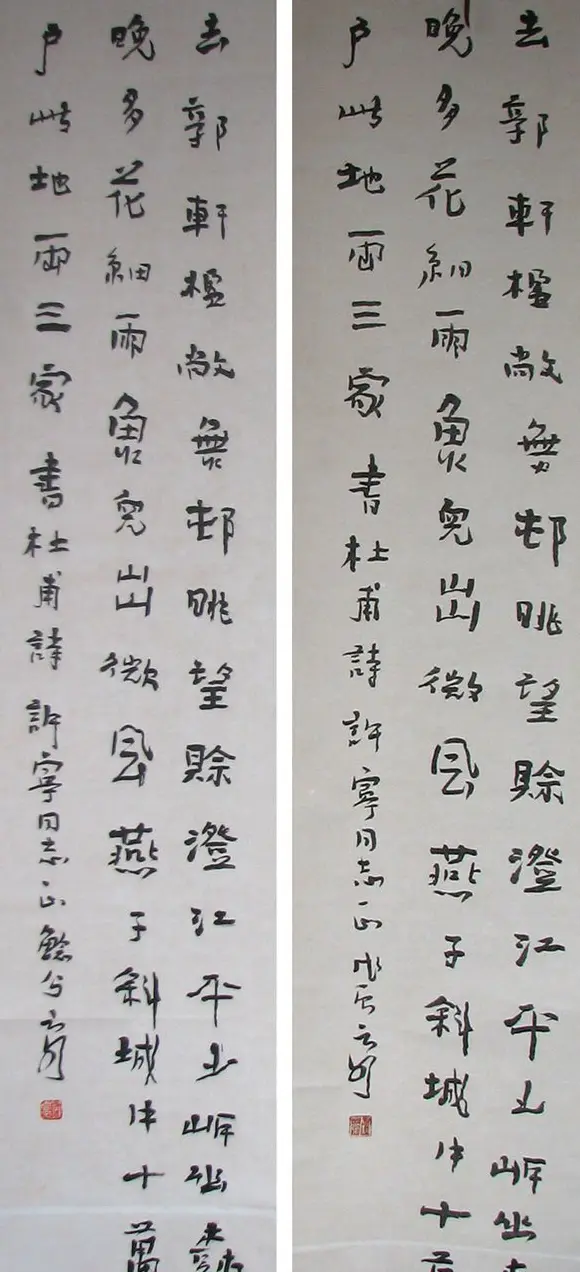 去郭軒楹敞無邨眺望賒澄江平少岸幽
晚多花細雨魚兒出微風燕子斜城中十
戶此地兩三家書杜甫詩許寧同志正
去郭軒楹敞無邨眺望賒澄江平少岸幽樹
晚多花細雨魚兒出微風燕子斜城中十萬
戶此地兩三家書杜甫詩許寧同志正